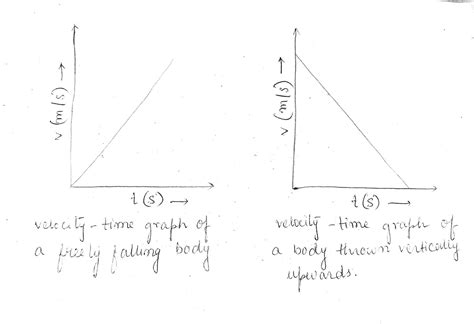 v (m/s) →
t (s) →
velocity-time graph of
a freely falling body
v (m/s) →
t (s) →
velocity-time graph of
a body thrown vertically
upwards.